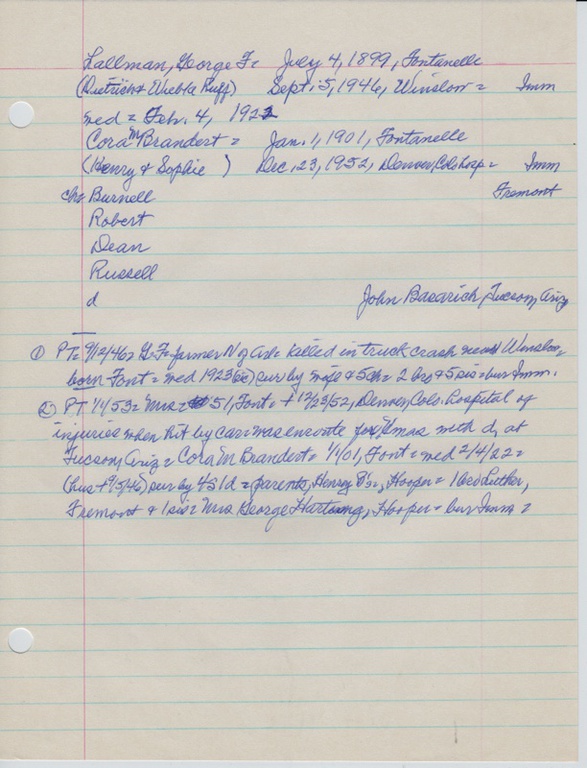 Lallman, George F= July 4, 1899, Fontanelle
(Dietrich & Wiebla Ruff) Sept. 5, 1946, Winslow = Imm
med = Feb. 4, 1922
Cora M Brandert = Jan. 1, 1901, Fontanelle
(Henry & Sophie ) Dec. 23, 1952, Denver, Colo hosp = Imm
ch= Burnell Fremont
Robert
Dean
Russell
d John Basarich, Tucson, Ariz
① PT= 9/12/46= G.F= farmer N of Arl= killed in truck crash near Winslow=
born Font= med 1923 (sic) sur by wife & 5ch= 2 bro & 5 sis= bur Imm.
② PT 1/1/53= Mrs= 51, Font= + 12/23/52, Denver, Colo. hospital of
injuries when hit by car= was enroute for Xmas with d, at
Tucson, Ariz= Cora M Brandert= 1/1/01, Font= med 2/4/22=
(hus + 9/5/46) sur by 4s 1d = parents, Henry B's=, Hooper= 1 bro Luther,
Fremont & 1 sis= Mrs George Hartung, Hooper= bur Imm=